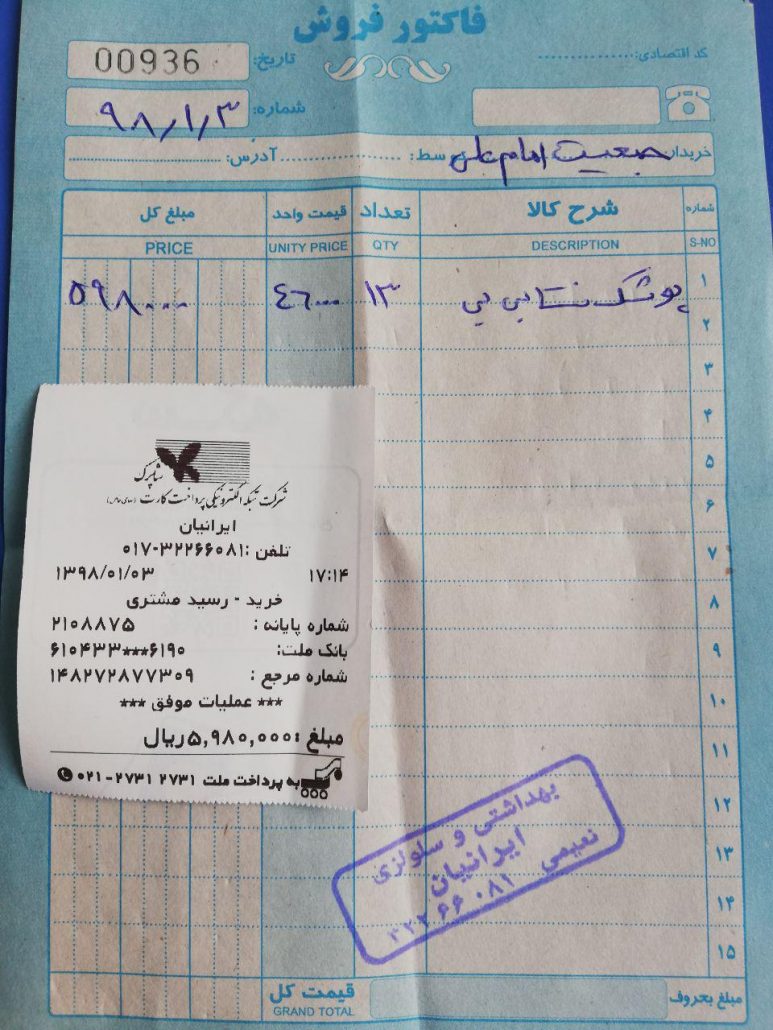 فاکتور فروش
کد اقتصادی:
تاریخ: 00936
شماره: ۹۸/۱/۳
خریدار: جمعیت امام علی سط: آدرس:
شماره شرح کالا تعداد قیمت واحد مبلغ کل
S-NO DESCRIPTION QTY UNITY PRICE PRICE
۱ پوشک نسا بی بی ۱۳ ۴۶۰۰۰ ۵۹۸۰۰۰
۲
۳
۴
۵
۶
۷
۸
۹
۱۰
۱۱
۱۲
۱۳
۱۴
۱۵
مبلغ بحروف قیمت کل
GRAND TOTAL
شاپرک
شرکت شبکه الکترونیکی پرداخت کارت (سهامی خاص)
ایرانیان
تلفن :۰۱۷-۳۲۲۶۶۰۸۱
۱۳۹۸/۰۱/۰۳ ۱۷:۱۴
خرید - رسید مشتری
شماره پایانه : ۲۱۰۸۸۷۵
بانک ملت: ۶۱۰۴۳۳***۶۱۹۰
شماره مرجع : ۱۴۸۲۷۲۸۷۷۳۰۹
*** عملیات موفق ***
مبلغ :۵,۹۸۰,۰۰۰ریال
به پرداخت ملت ۲۷۳۱ ۲۷۳۱-۰۲۱
بهداشتی و سلولزی
ایرانیان
نعیمی ۳۲۲۶۶۰۸۱